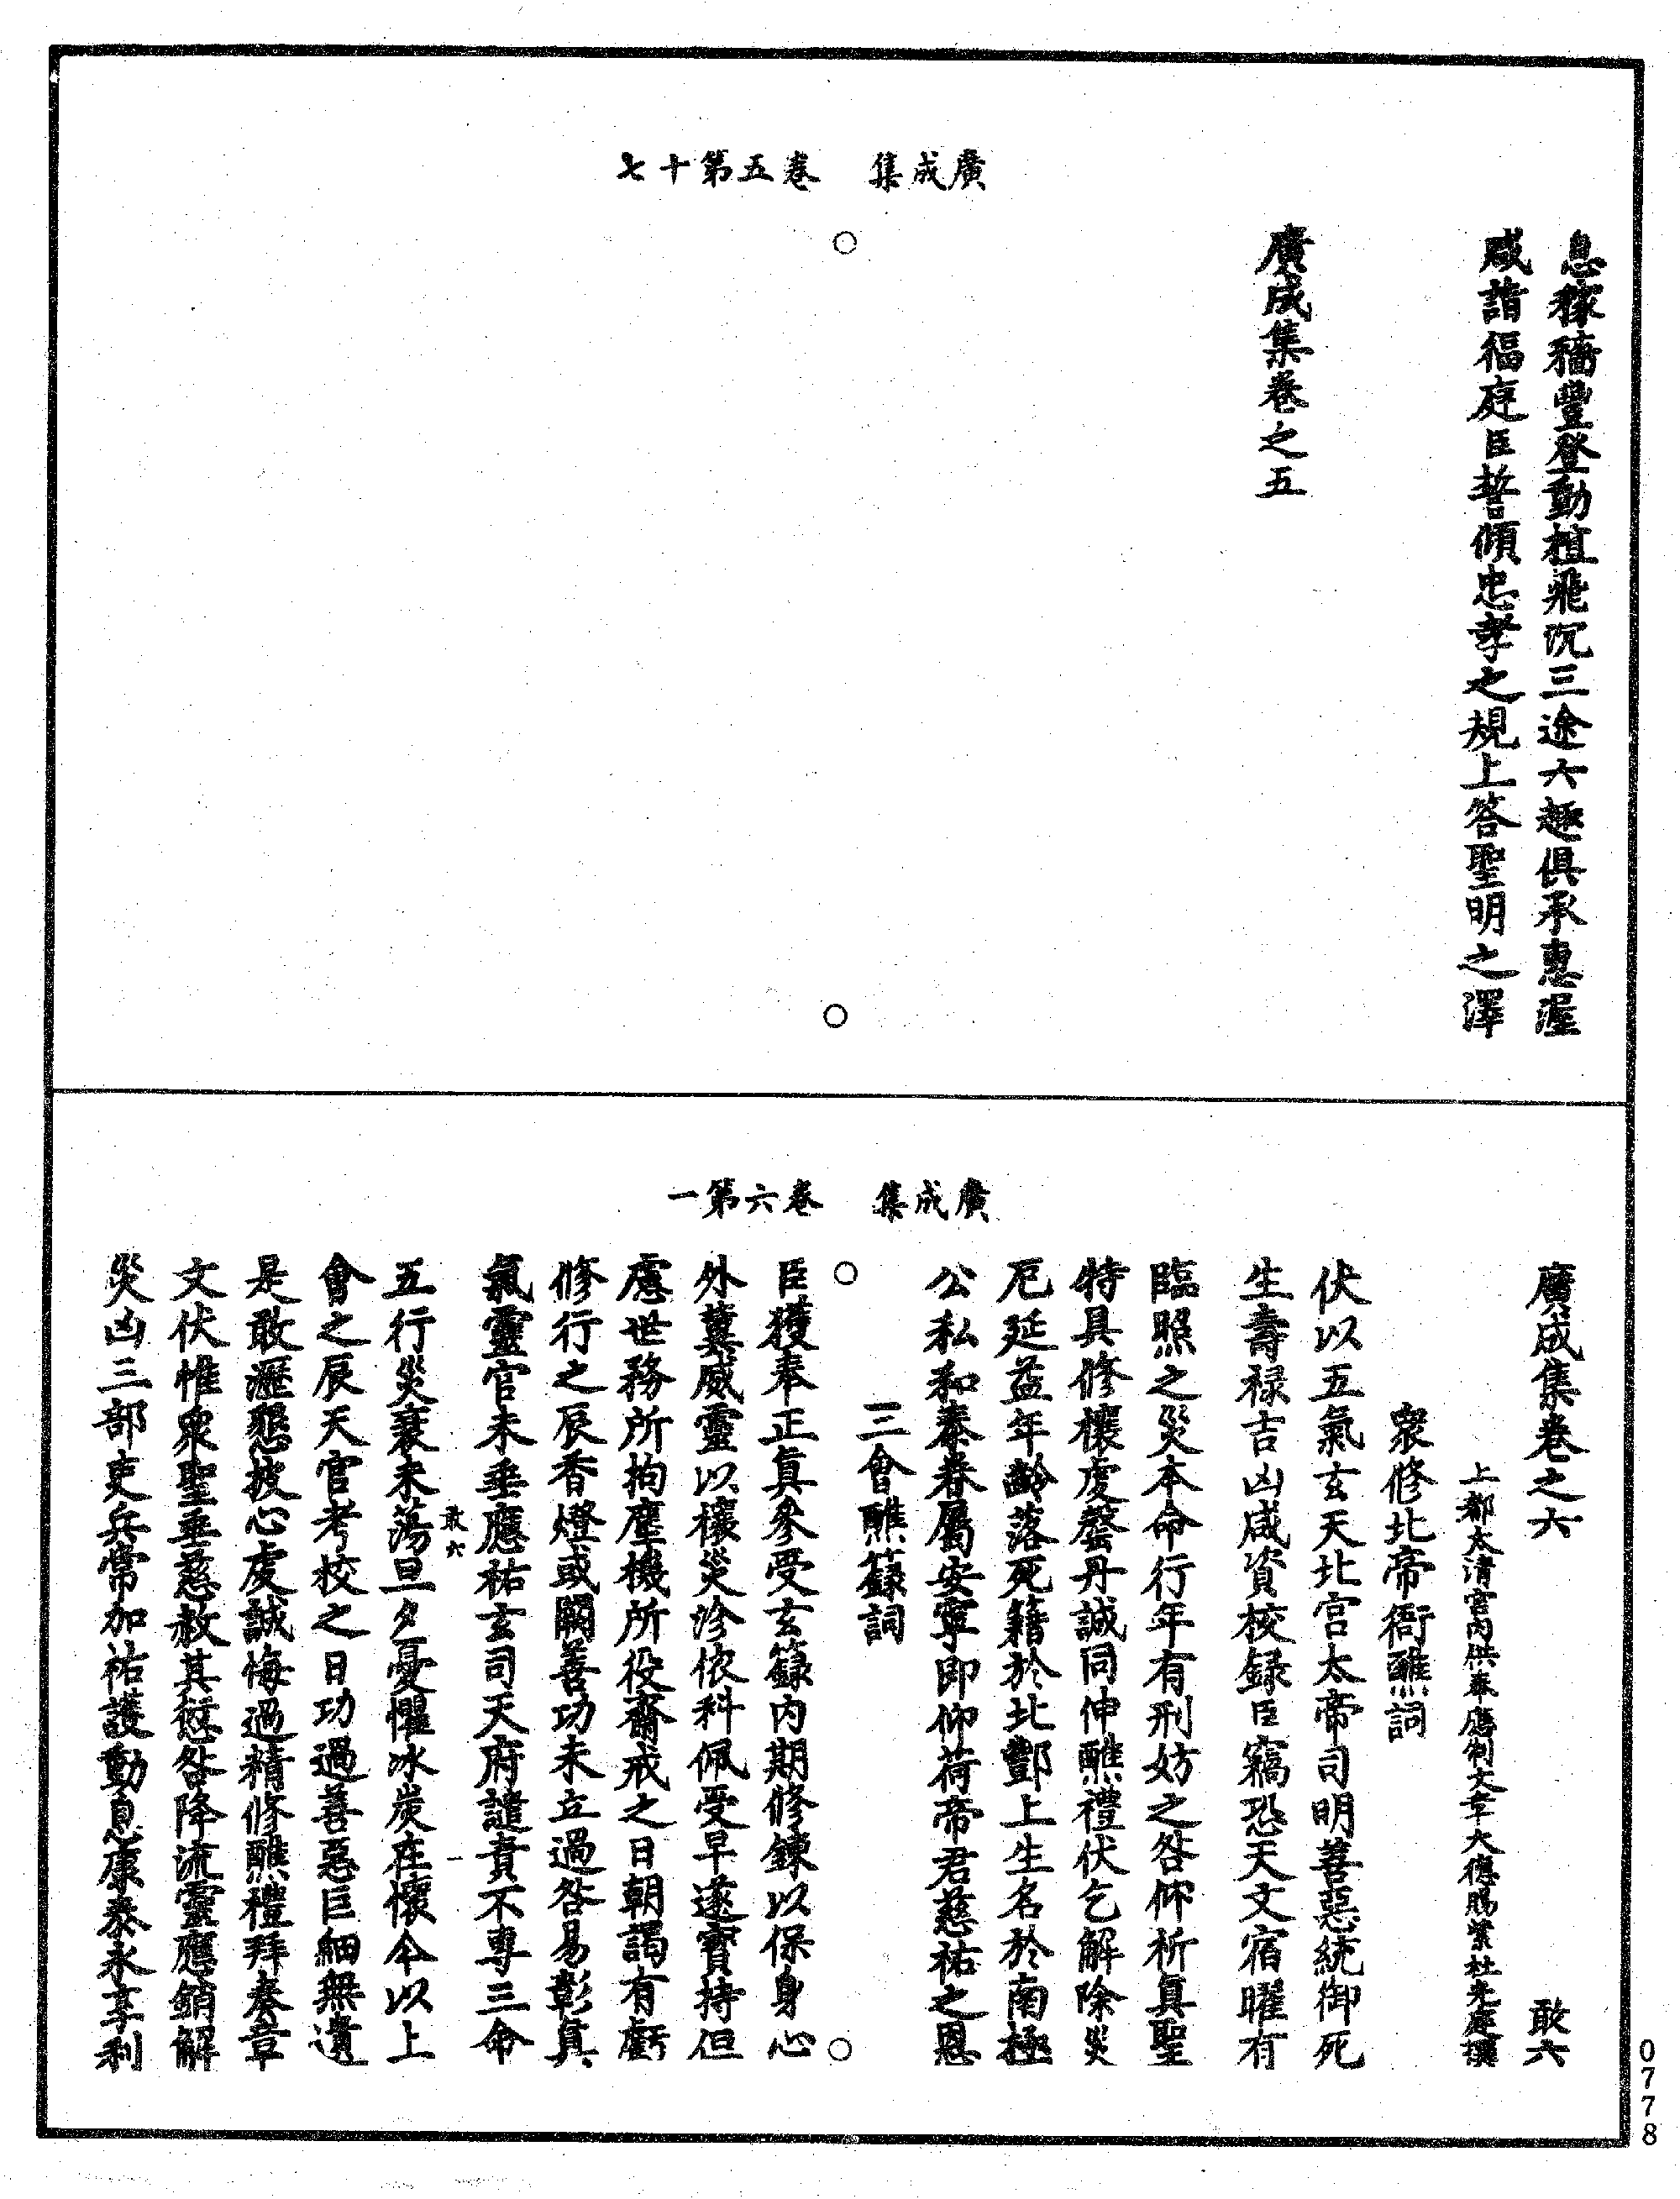 廣成集　卷五第十七
息稼穡豐登動植飛沉三途六趣俱承惠渥
咸詣福庭臣誓傾忠孝之規上答聖明之澤
廣成集卷之五
廣成集　卷六第一
廣成集卷之六　敢六
上都太清宮內供奉應制文章大德賜紫杜光庭撰
衆修北帝衙醮詞
伏以五氣玄天北宮太帝司明善惡統御死
生壽祿吉凶咸資校録臣竊恐天文宿曜有
臨照之災本命行年有刑妨之咎仰祈真聖
特具修禳虔罄丹誠同伸醮禮伏乞解除災
厄延益年齡落死籍於北酆上生名於南極
公私和泰眷屬安寧即仰荷帝君慈祐之恩
三會醮籙詞
臣獲奉正真叅受玄籙内期修鍊以保身心
外冀威靈以禳災沴依科佩受早遂寳持但
慮世務所拘塵機所役齋戒之日朝謁有虧
修行之辰香燈或闕善功未立過咎易彰真
氣靈官未垂應祐玄司天府譴責不專三命
五行災衰未蕩旦夕憂懼冰炭在懷今以上
敢六　一
會之辰天官考校之日功過善惡巨細無遺
是敢瀝懇披心虔誠悔過精修醮禮拜奏章
文伏惟衆聖垂慈赦其愆咎降流靈應銷解
災凶三部吏兵常加祐護動息康泰永享利
0778